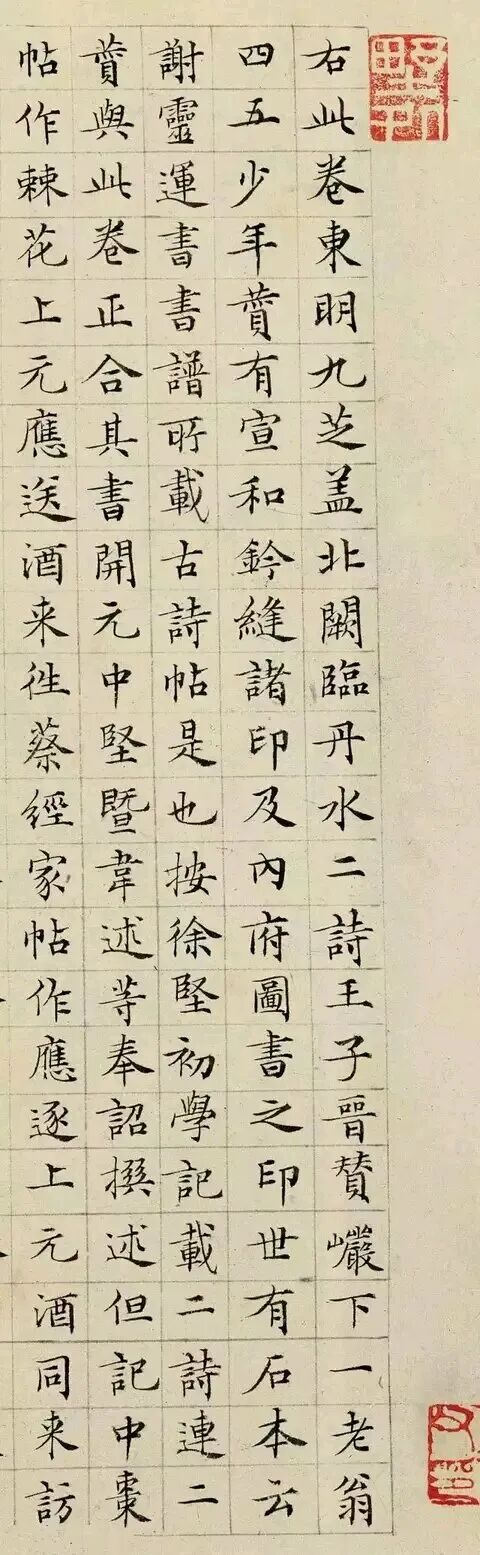 右此卷東明九芝盖北闕臨丹水二詩王子晉贊巖下一老翁
四五少年贊有宣和鈐縫諸印及內府圖書之印世有石本云
謝靈運書書譜所載古詩帖是也按徐堅初學記載二詩連二
贊與此卷正合其書開元中堅暨韋述等奉詔撰述但記中棗
帖作棘花上元應送酒来徃蔡經家帖作應逐上元酒同来訪